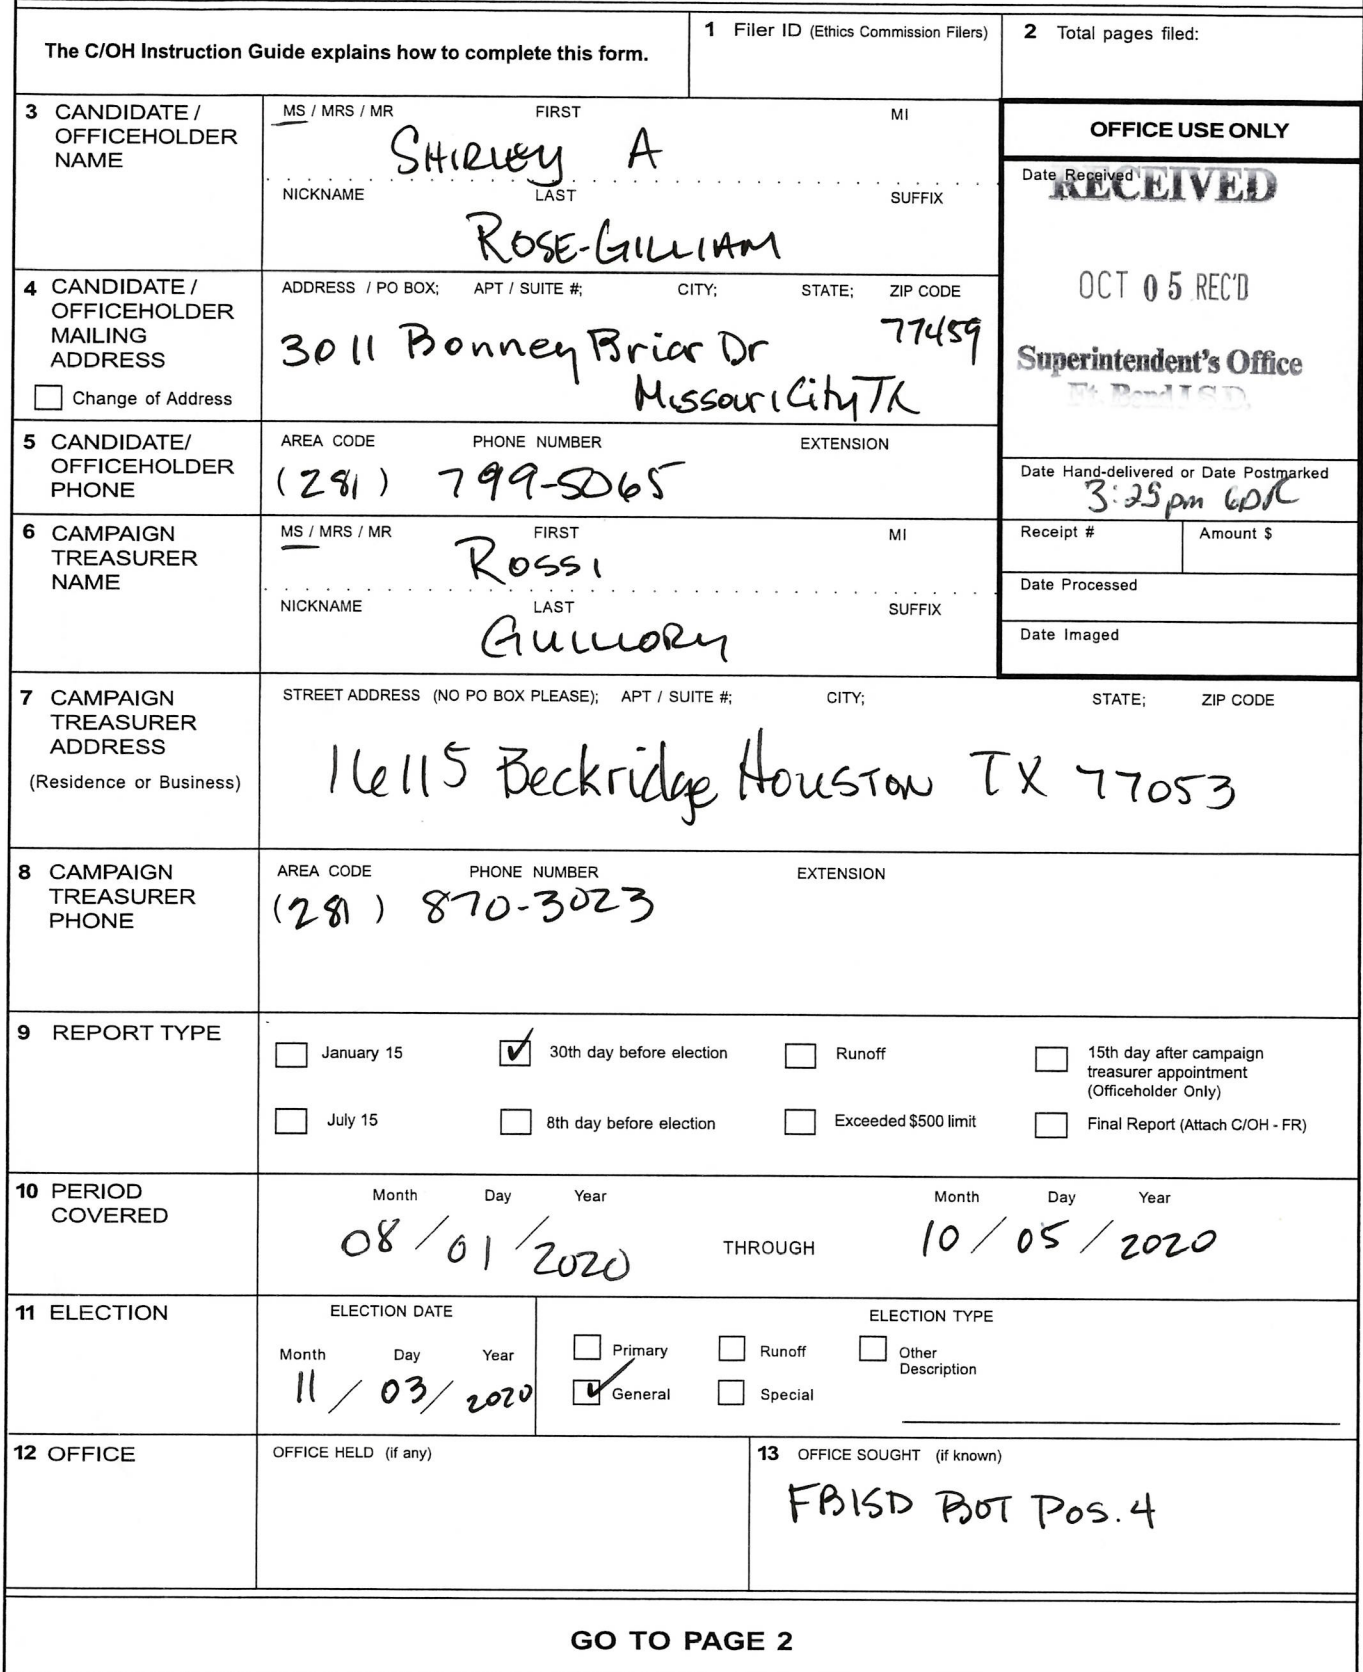 The C/OH Instruction Guide explains how to complete this form.
1 Filer ID (Ethics Commission Filers)
2 Total pages filed:
3 CANDIDATE / OFFICEHOLDER NAME
MS / MRS / MR FIRST MI
SHIRLEY A
NICKNAME LAST SUFFIX
ROSE-GILLIAM
OFFICE USE ONLY
Date Received
RECEIVED
OCT 05 REC'D
Superintendent's Office
Ft. Bend I.S.D.
4 CANDIDATE / OFFICEHOLDER MAILING ADDRESS
Change of Address
ADDRESS / PO BOX; APT / SUITE #; CITY; STATE; ZIP CODE
3011 Bonney Briar Dr 77459
Missouri City TX
5 CANDIDATE/ OFFICEHOLDER PHONE
AREA CODE PHONE NUMBER EXTENSION
(281) 799-5065
Date Hand-delivered or Date Postmarked
3:25pm
Receipt # Amount $
Date Processed
Date Imaged
6 CAMPAIGN TREASURER NAME
MS / MRS / MR FIRST MI
ROSSI
NICKNAME LAST SUFFIX
GUILLORY
7 CAMPAIGN TREASURER ADDRESS
(Residence or Business)
STREET ADDRESS (NO PO BOX PLEASE); APT / SUITE #; CITY; STATE; ZIP CODE
16115 Beckridge Houston TX 77053
8 CAMPAIGN TREASURER PHONE
AREA CODE PHONE NUMBER EXTENSION
(281) 870-3023
9 REPORT TYPE
January 15 30th day before election Runoff 15th day after campaign treasurer appointment (Officeholder Only)
July 15 8th day before election Exceeded $500 limit Final Report (Attach C/OH - FR)
10 PERIOD COVERED
Month Day Year Month Day Year
08 / 01 / 2020 THROUGH 10 / 05 / 2020
11 ELECTION
ELECTION DATE
Month Day Year
11 / 03 / 2020
ELECTION TYPE
Primary Runoff Other Description
General Special
12 OFFICE
OFFICE HELD (if any)
13 OFFICE SOUGHT (if known)
FBISD BOT Pos. 4
GO TO PAGE 2